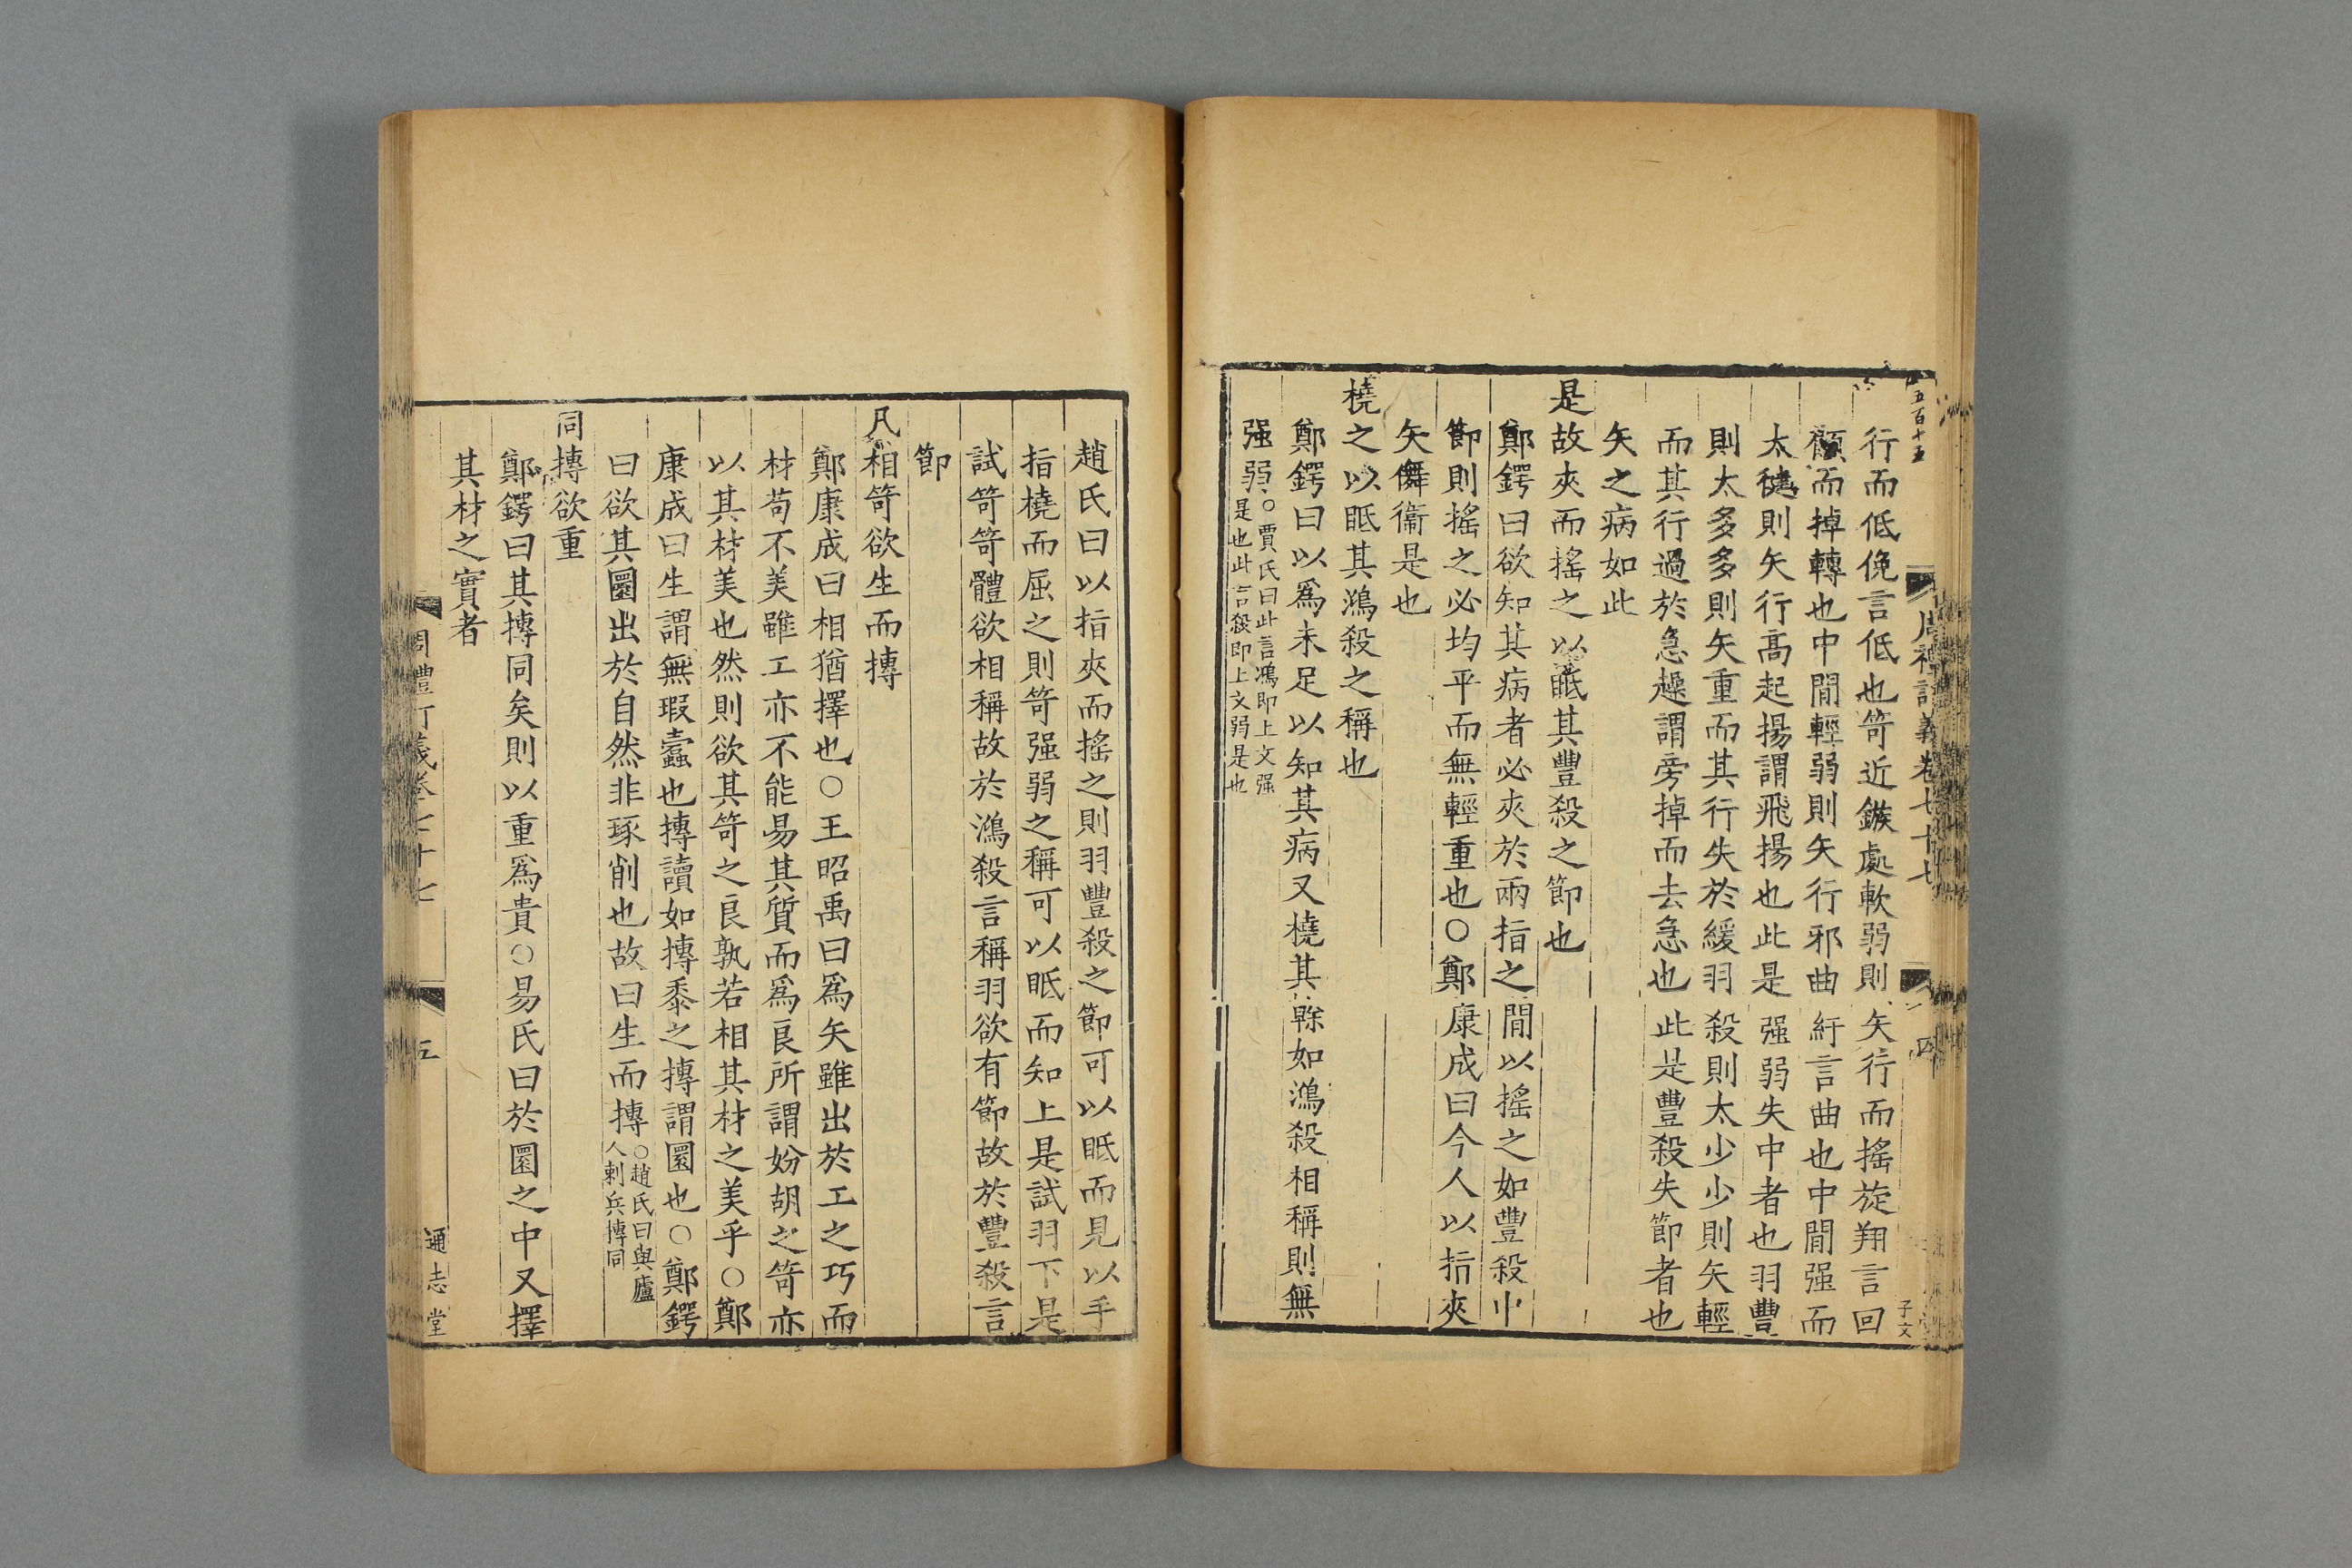 五百十五
周禮訂義卷七十七
四
子文
行而低俛言低也笴近鏃處軟弱則矢行而搖旋翔言回
顧而掉轉也中間輕弱則矢行邪曲紆言曲也中間强而
太健則矢行高起揚謂飛揚也此是强弱失中者也羽豐
則太多多則矢重而其行失於緩羽殺則太少少則矢輕
而其行過於急趮謂旁掉而去急也此是豐殺失節者也
矢之病如此
是故夾而搖之以眂其豐殺之節也
鄭鍔曰欲知其病者必夾於兩指之間以搖之如豐殺中
節則搖之必均平而無輕重也○鄭康成曰今人以指夾
矢儛衞是也
橈之以眂其鴻殺之稱也
鄭鍔曰以爲未足以知其病又橈其榦如鴻殺相稱則無
强弱○賈氏曰此言鴻即上文强
是也此言殺即上文弱是也
趙氏曰以指夾而搖之則羽豐殺之節可以眂而見以手
指橈而屈之則笴强弱之稱可以眂而知上是試羽下是
試笴笴體欲相稱故於鴻殺言稱羽欲有節故於豐殺言
節
凡相笴欲生而摶
鄭康成曰相猶擇也○王昭禹曰爲矢雖出於工之巧而
材苟不美雖工亦不能易其質而爲良所謂妢胡之笴亦
以其材美也然則欲其笴之良孰若相其材之美乎○鄭
康成曰生謂無瑕蠹也摶讀如摶黍之摶謂圜也○鄭鍔
曰欲其圜出於自然非琢削也故曰生而摶○趙氏曰與廬
人刺兵摶同
同摶欲重
鄭鍔曰其摶同矣則以重爲貴○易氏曰於圜之中又擇
其材之實者
周禮訂義卷七十七
五
通志堂